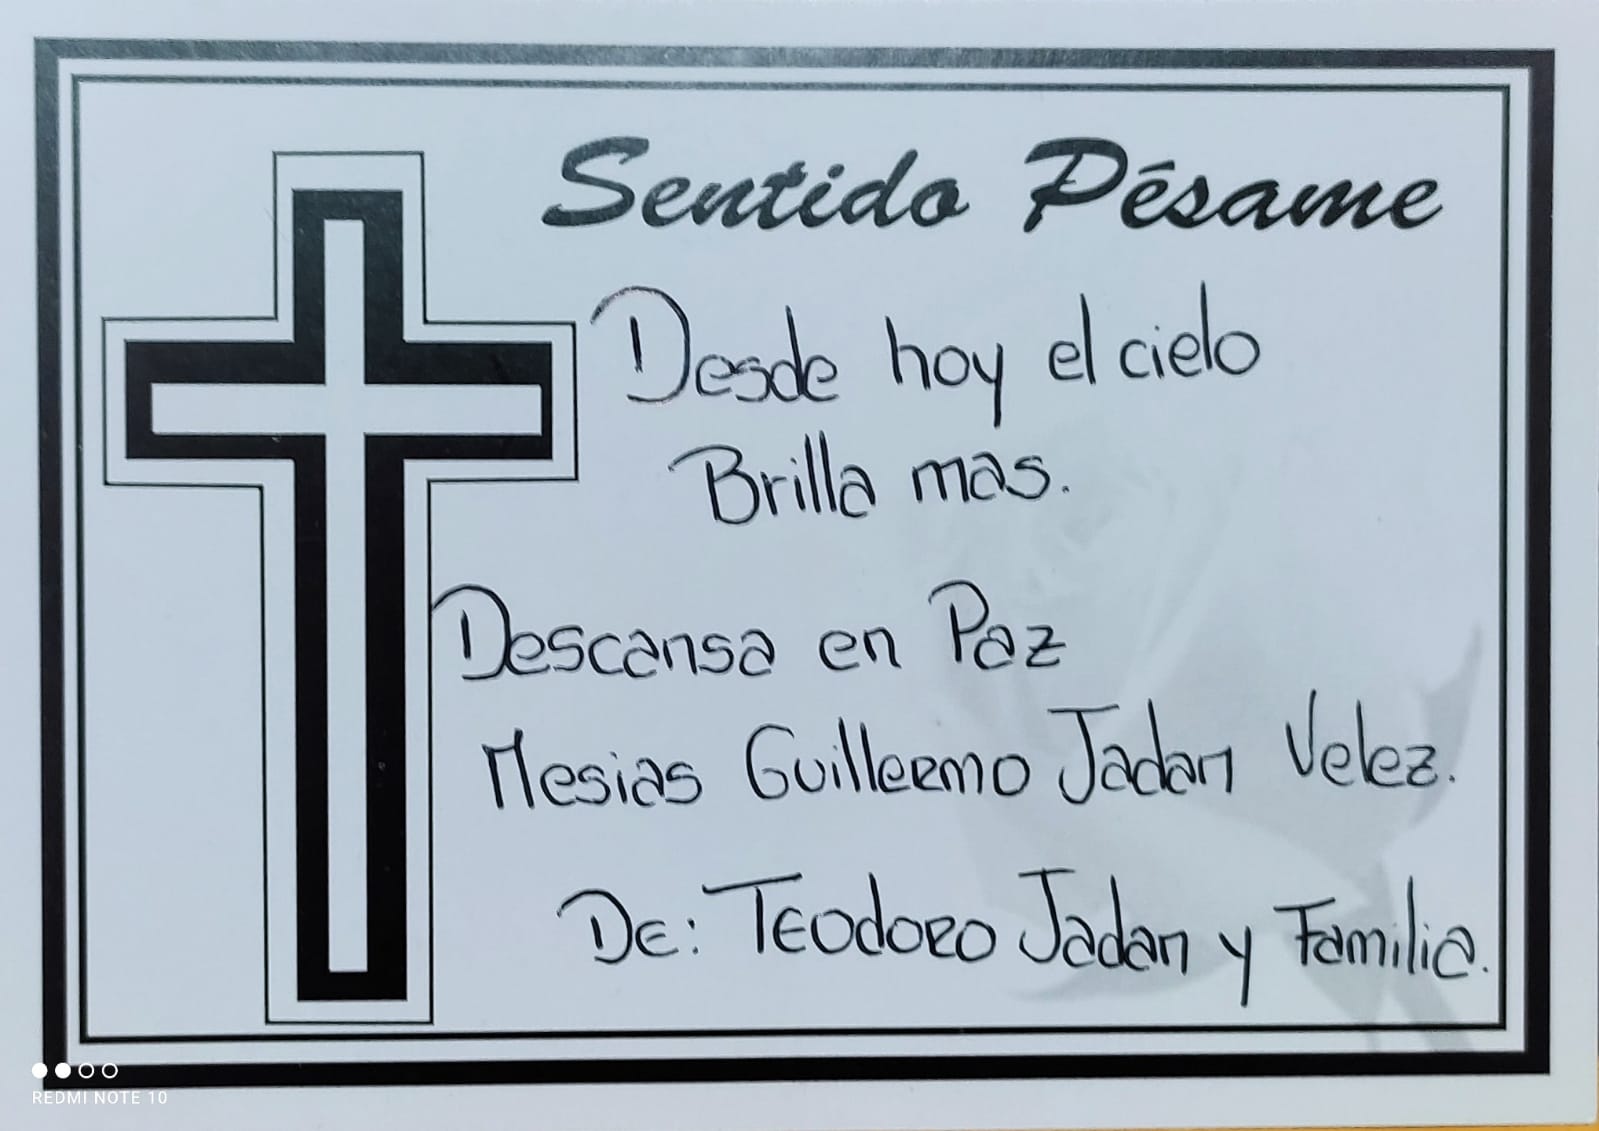 Sentido Pésame
Desde hoy el cielo
Brilla mas.
Descansa en Paz
Mesias Guillermo Jadan Velez.
De: Teodoro Jadan y Familia.
REDMI NOTE 10